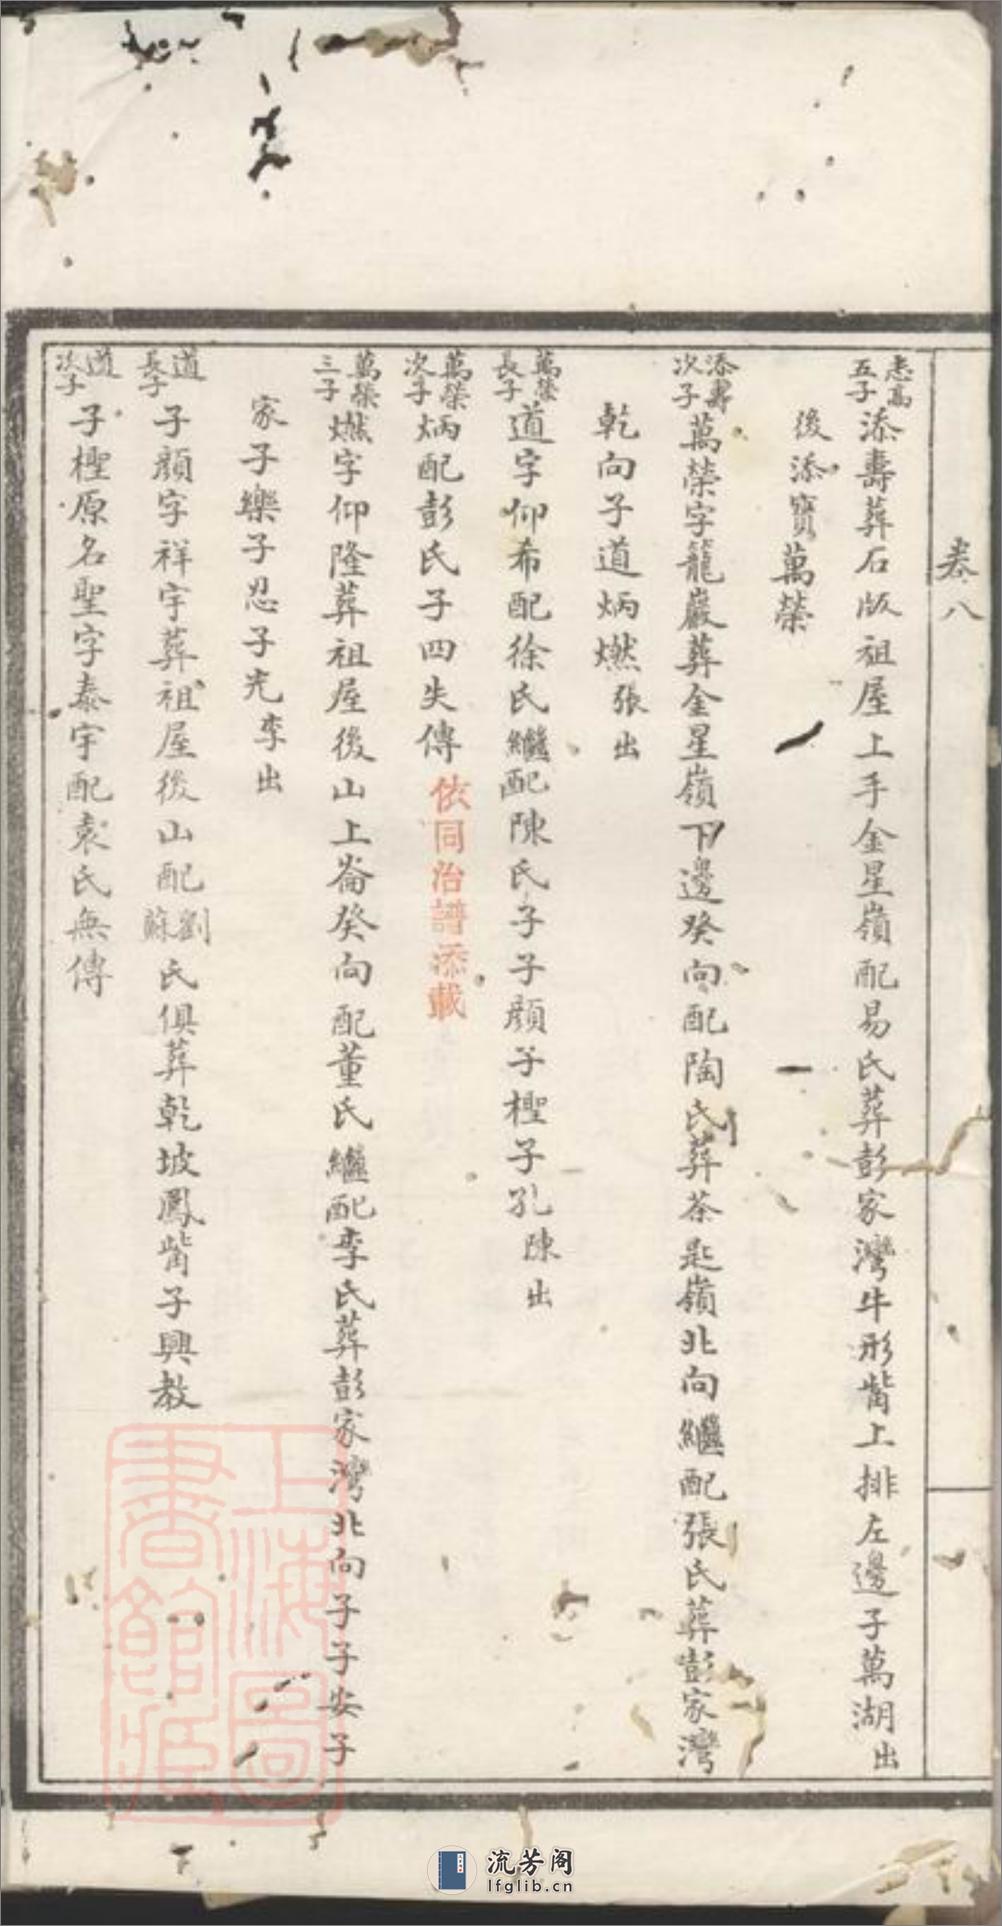 卷八
志高五子添壽葬石版祖屋上手金星嶺配易氏葬彭家灣牛形嘴上排左邊子萬湖出
後添寶萬榮
添壽次子萬榮字籠巖葬金星嶺下邊癸向配陶氏葬茶匙嶺北向繼配張氏葬彭家灣
乾向子道炳燃張出
萬榮長子道字仰希配徐氏繼配陳氏子子顔子檉子孔陳出
萬榮次子炳配彭氏子四失傳依同治譜添載
萬榮三子燃字仰隆葬祖屋後山上崙癸向配董氏繼配李氏葬彭家灣北向子子安子
家子樂子忍子光李出
道長子子顔字祥宇葬祖屋後山配劉蘇氏俱葬乾坡鳳嘴子興教
道次子子檉原名聖字泰宇配袁氏無傳
上海圖書館藏
流芳阁
lfglib.cn